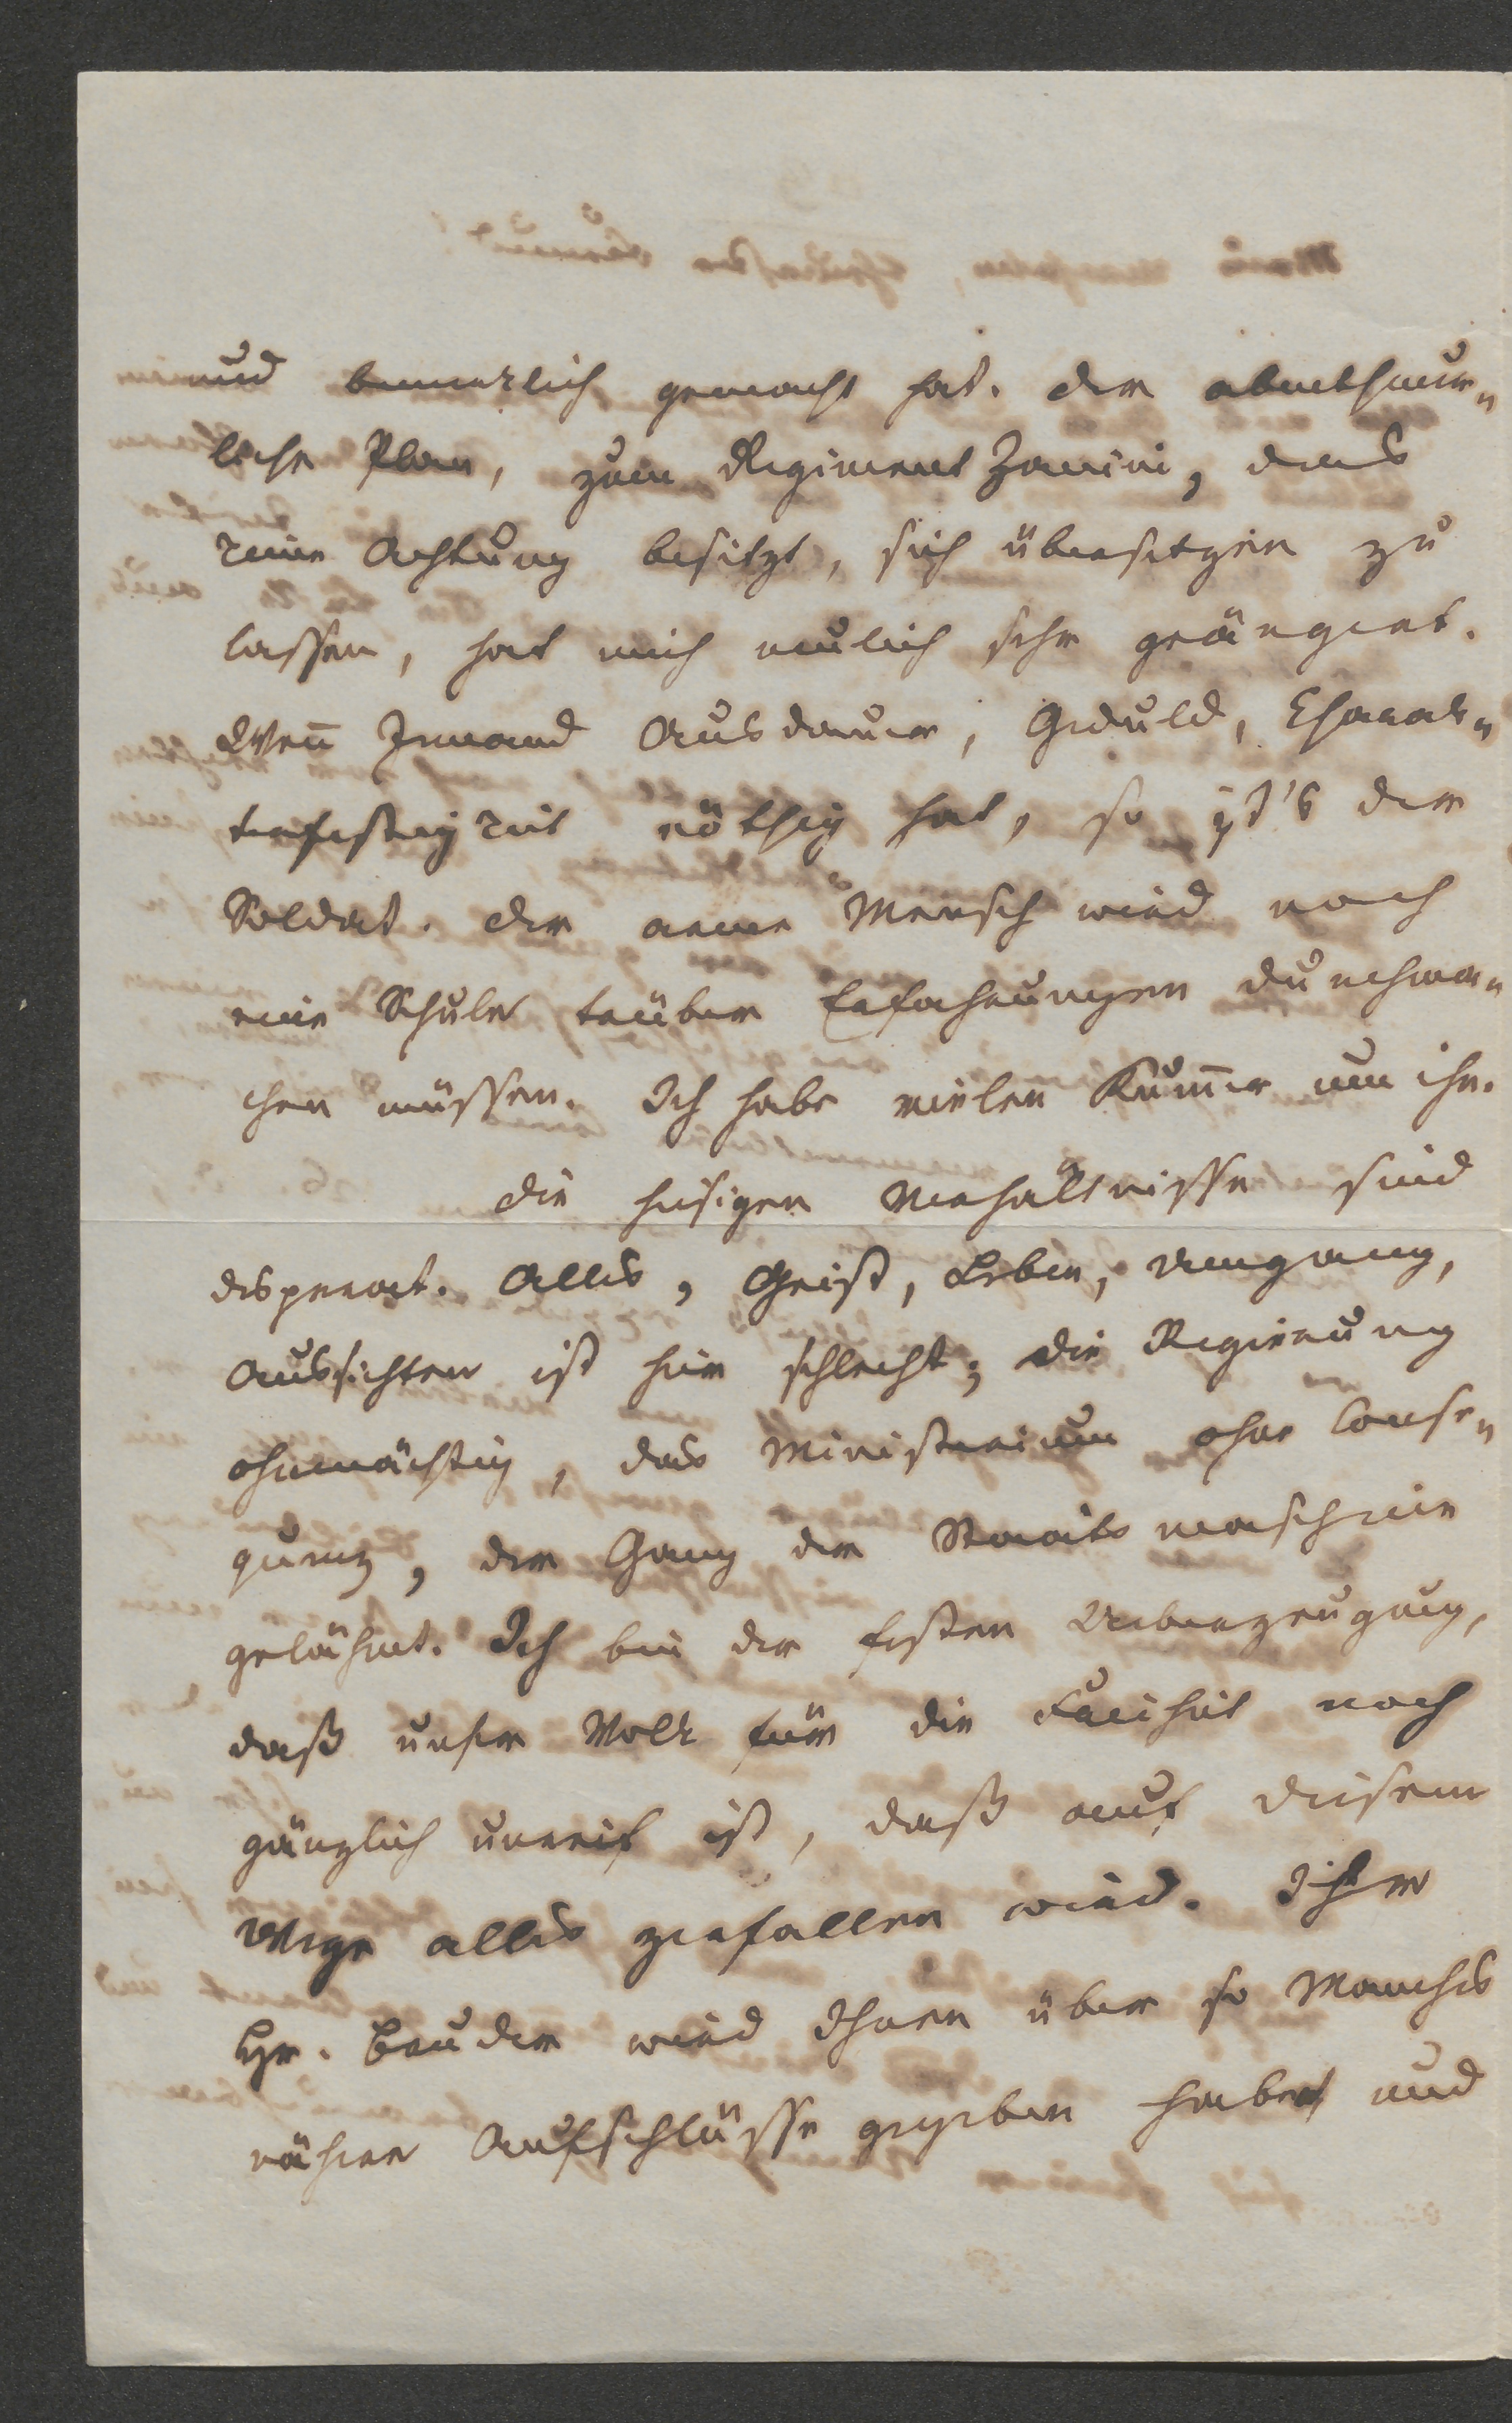 und bemerklich gemacht hat. Der abentheuer„
liche Plan, zum Regiment Zanini, das
keine Achtung besitzt, sich übersetzen zu
lassen, hat mich neulich sehr geärgert.
Weñ Jemand Ausdauer, Geduld, Charak„
terfestigkeit nöthig hat, so ist's der
Soldat. Der arme Mensch wird noch
eine Schule trüber Erfahrungen durchma„
chen müssen. Ich habe vielen Kum̃er um ihn.
Die hiesigen Verhältnisse sind
desperat. Alles, Geist, Leben, Umgang,
Aussichten ist hier schlecht; die Regierung
ohnmächtig, das Ministerium ohne Conse„
quenz, der Gang der Staatsmaschine
gelähmt. Ich bin der festen Ueberzeugung,
daß unser Volk für die Freiheit noch
gänzlich unreif ist, daß auf diesem
Wege alles zerfallen wird. Ihr
Hr. Bruder wird Ihnen über so Manches
nähere Aufschlüsse gegeben haben und